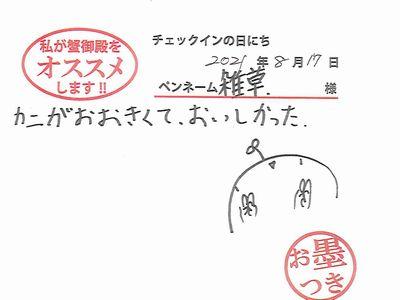 私が蟹御殿を
オススメ
します!!
チェックインの日にち
2021年8月17日
ペンネーム 雑草. 様
カニがおおきくて、おいしかった.
お墨
つき